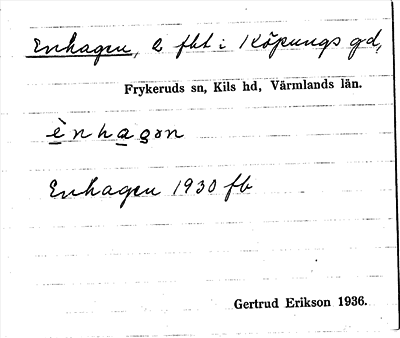 Enhagen, 2 fht i Köpungs gd,
Frykeruds sn, Kils hd, Värmlands län.
ènhagən
Enhagen 1930 fb
Gertrud Erikson 1936.